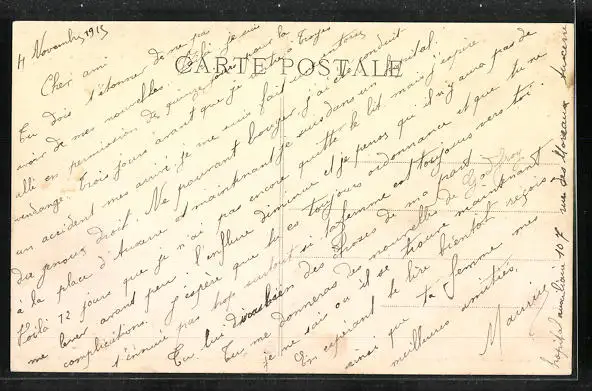 CARTE POSTALE
4 Novembre 1915
Cher ami
Tu dois t'étonner de ne pas
avoir de mes nouvelles. Voilà je suis
allé en permission de quinze jours pour la
vendange. Trois jours avant que je rentre à Troyes
un accident m'es arrivé je me suis fait une entorse
du genoux droit. Ne pouvant bouger j'ai été conduit
à la place d'Auxerre et maintenant je suis dans un hôpital.
Voilà 12 jours que je n'ai pas encore quitter le lit mais j'espère
me lever avant peu l'enflure diminue et je pense qu'il n'y aura pas de
complications. J'espère que tu es toujours ordonnance et que tu ne
t'ennuie pas trop surtout si ta femme est toujours vers toi.
Tu lui diras bien des choses de ma part
Tu me donneras des nouvelles de Godfroy
je ne sais où il se trouve maintenant
En esperant te lire bientôt reçois
ainsi que ta femme mes
meilleures amitiés.
Maurice
hopital auxiliaire 107 rue des Moreaux Auxerre